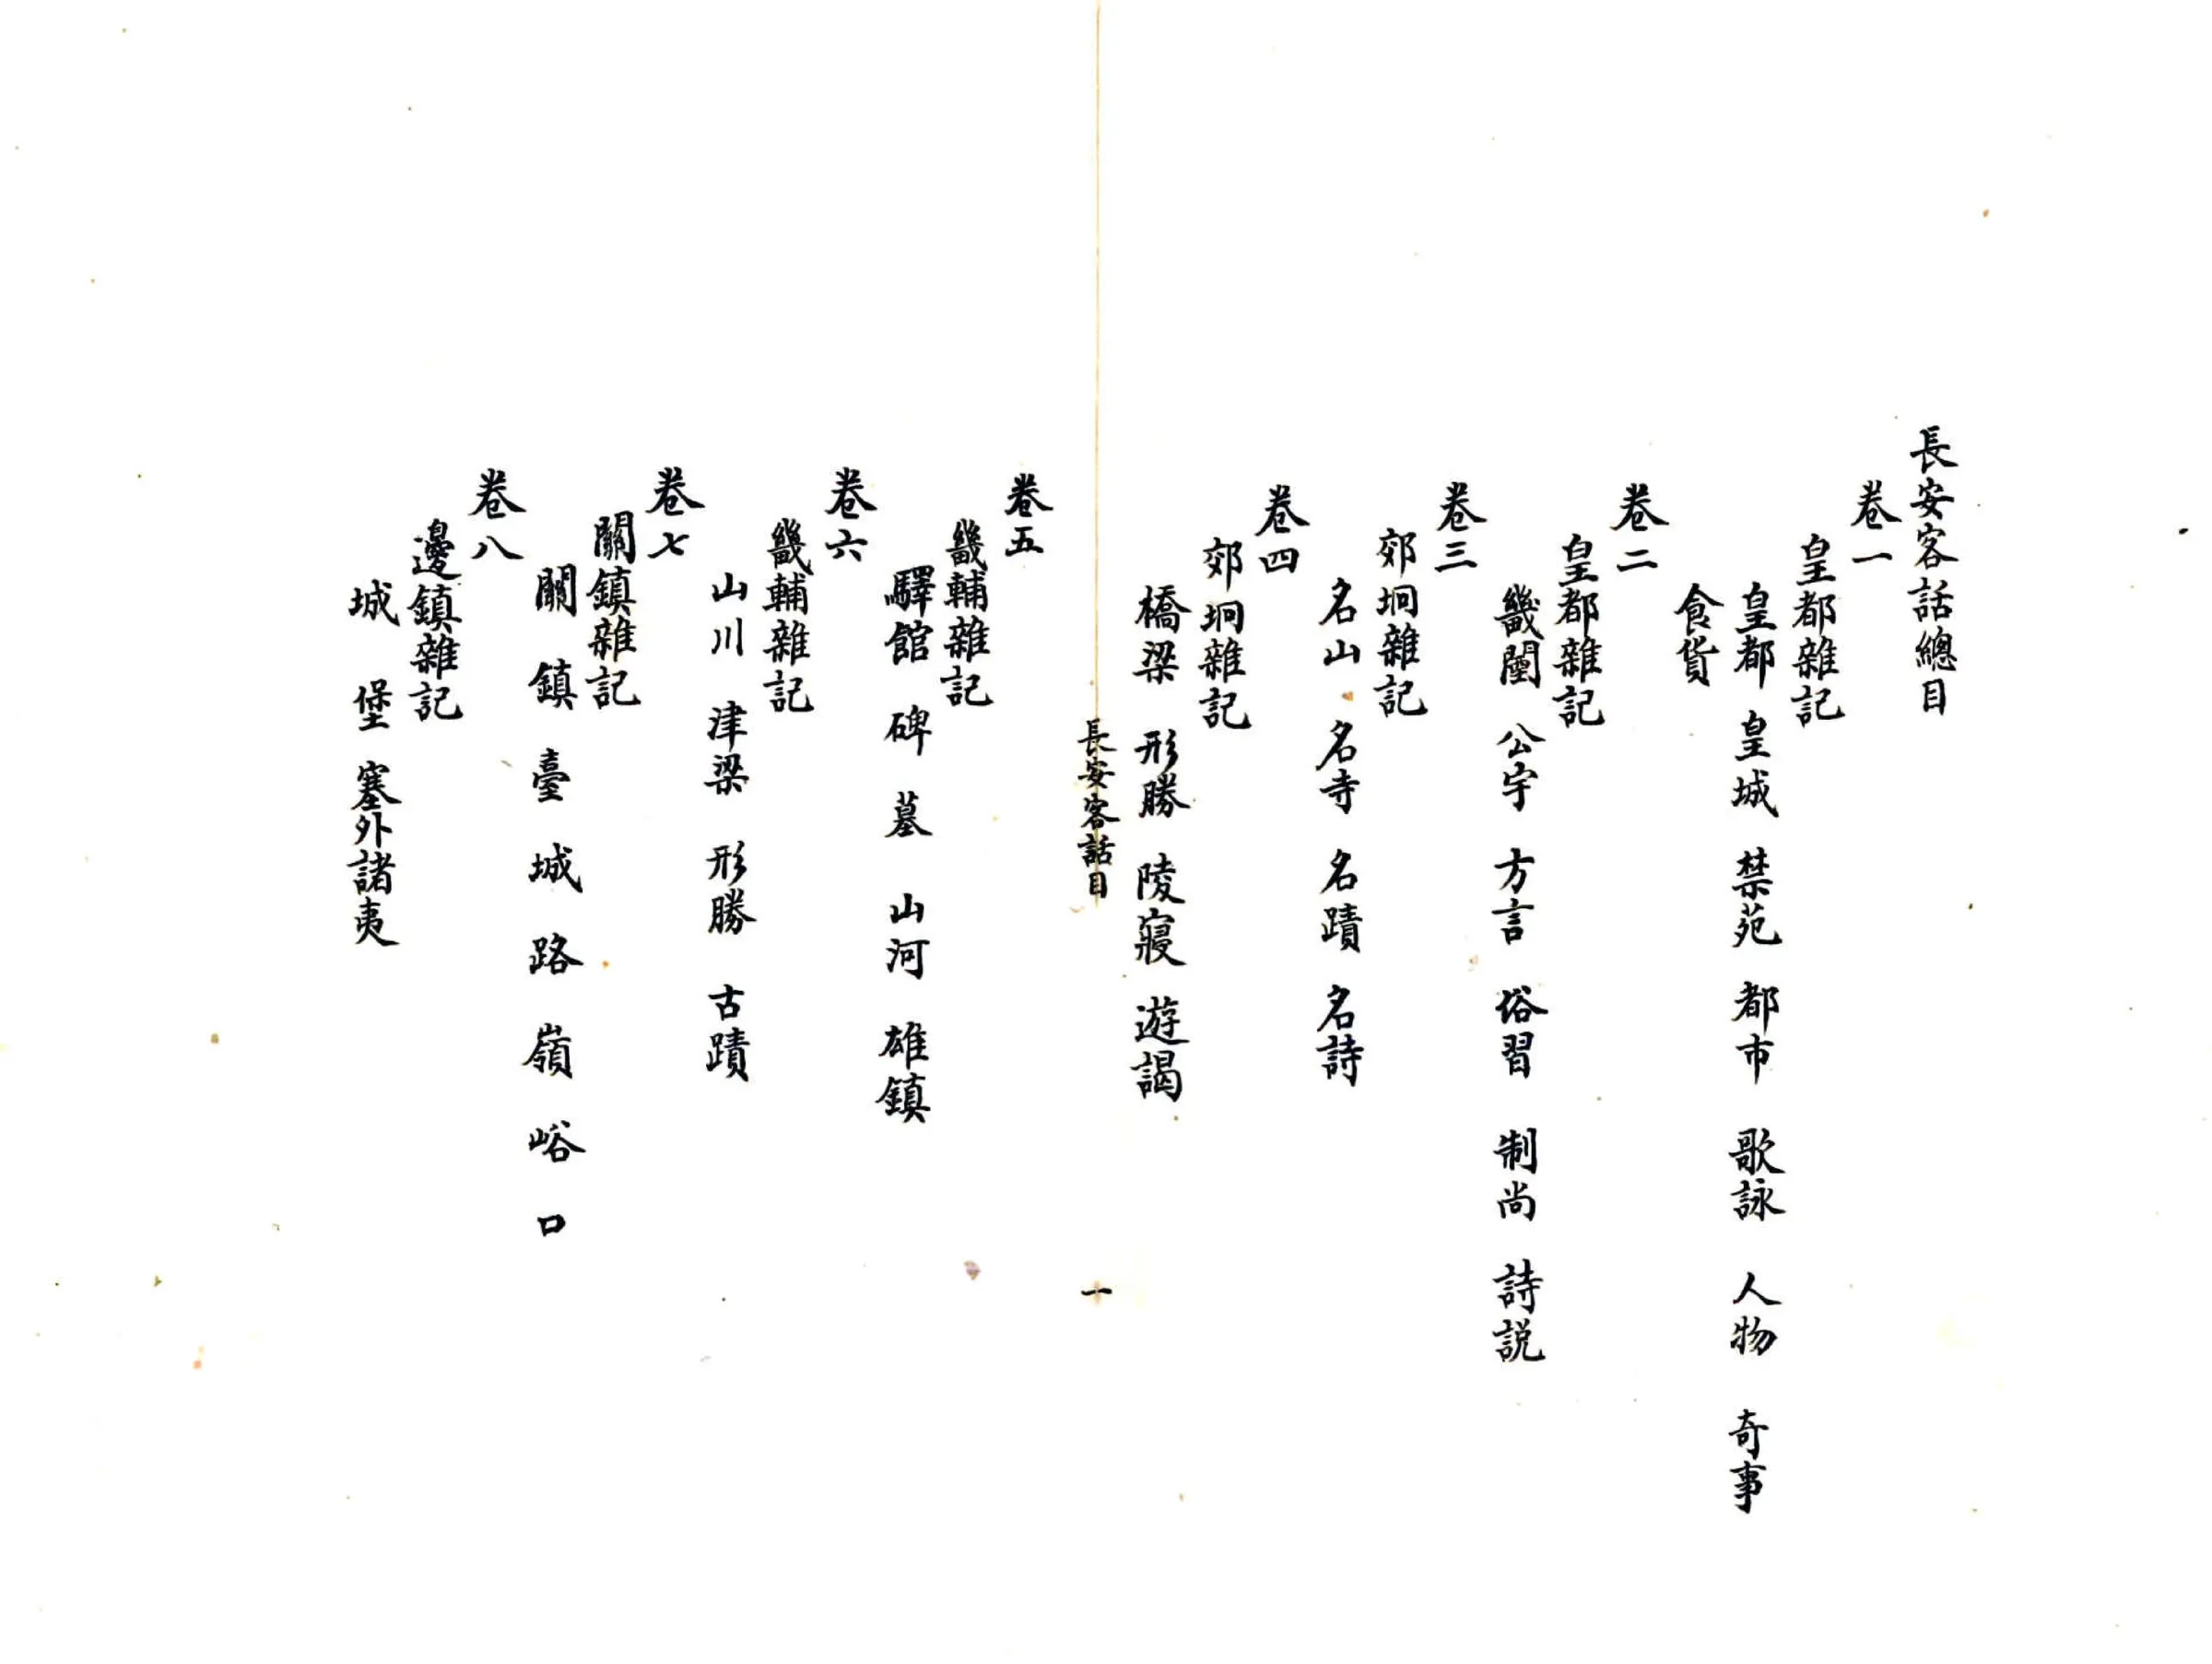 長安客話總目
卷一
皇都雜記
皇都 皇城 禁苑 都市 歌詠 人物 奇事
食貨
卷二
皇都雜記
畿闉 公宇 方言 俗習 制尚 詩説
卷三
郊坰雜記
名山 名寺 名蹟 名詩
卷四
郊坰雜記
橋梁 形勝 陵寢 遊謁
長安客話目
一
卷五
畿輔雜記
驛館 碑 墓 山河 雄鎮
卷六
畿輔雜記
山川 津梁 形勝 古蹟
卷七
關鎮雜記
關 鎮 臺 城 路 嶺 峪 口
卷八
邊鎮雜記
城 堡 塞外諸夷